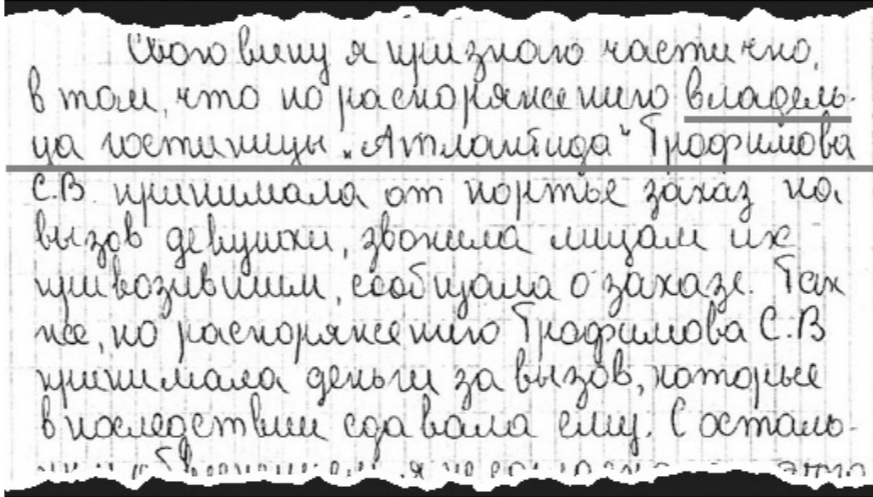 Свою вину я признаю частично,
в том, что по распоряжению владель-
ца гостиницы „Атлантида" Трофимова
С.В. принимала от портье заказ на
вызов девушки, звонила лицам их
привозившим, сообщала о заказе. Так
же, по распоряжению Трофимова С.В
принимала деньги за вызов, которые
в последствии сдавала ему. С осталь-